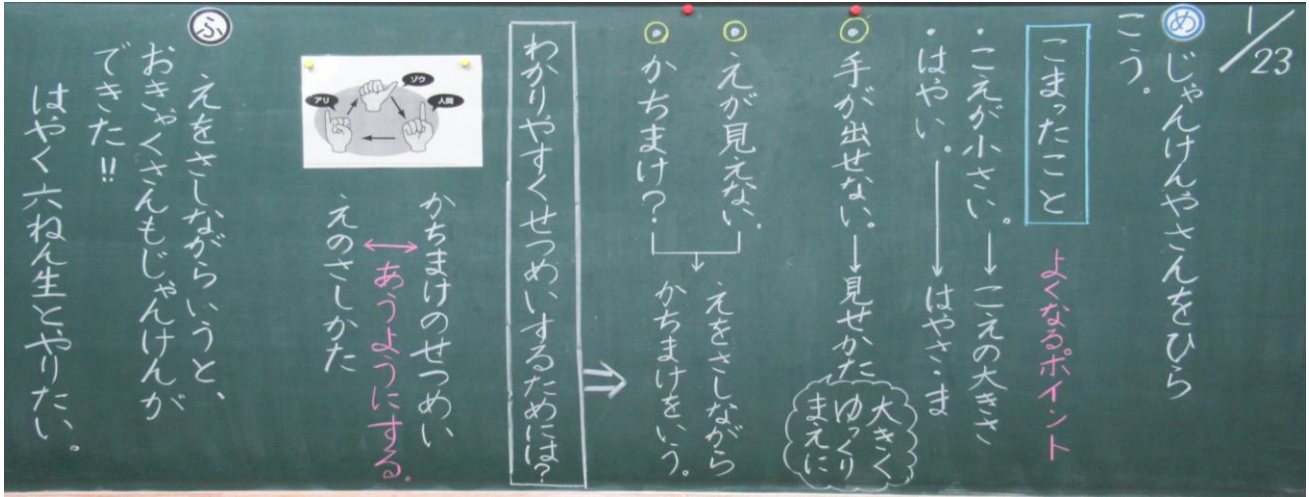 1/23
め じゃんけんやさんをひら
こう。
こまったこと
よくなるポイント
・こえが小さい。→こえの大きさ
・はやい。→はやさ・ま
手が出せない。→見せかた
大きく
ゆっくり
まえに
えが見えない。
かちまけ?
えをさしながら
かちまけをいう。
わかりやすくせつめいするためには?
⇒
ゾウ
人間
アリ
かちまけのせつめい
↔あうようにする。
えのさしかた
ふ えをさしながらいうと、
おきゃくさんもじゃんけんが
できた!!
はやく六ねん生とやりたい。